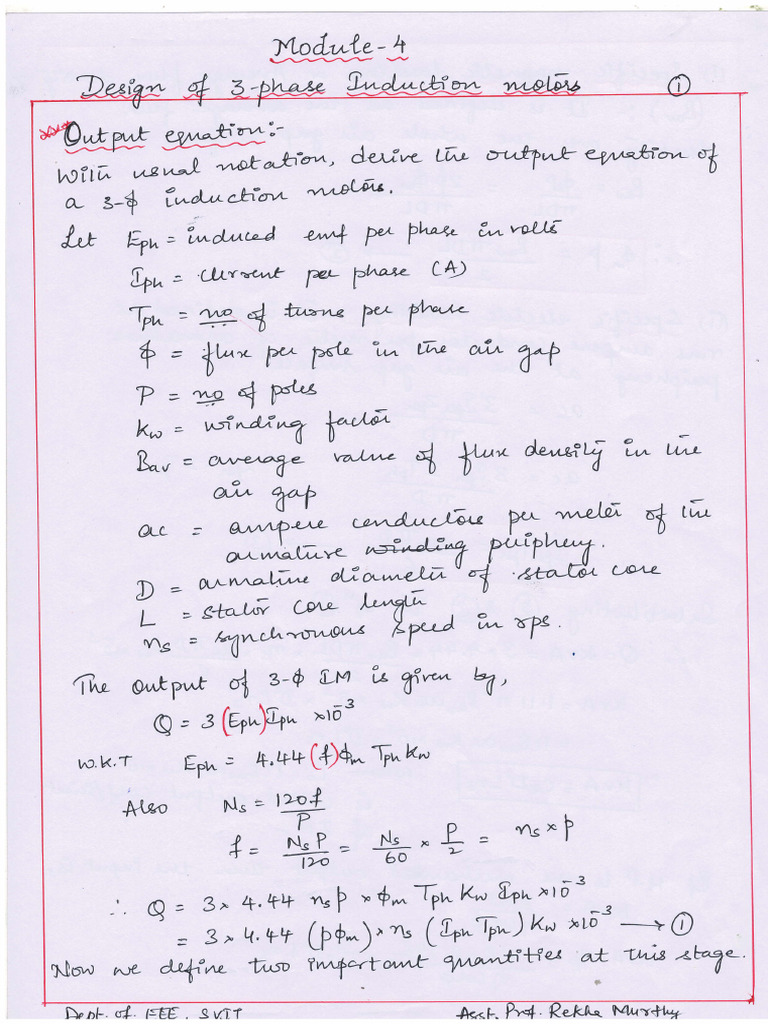 Module-4
Design of 3-phase Induction motors ①
Output equation:-
With usual notation, derive the output equation of
a 3-ϕ induction motors.
Let Eph = induced emf per phase in volts
Iph = current per phase (A)
Tph = no of turns per phase
ϕ = flux per pole in the air gap
P = no of poles
Kw = winding factor
Bav = average value of flux density in the
air gap
ac = ampere conductors per meter of the
armature winding periphery.
D = armature diameter of stator core
L = stator core length
ns = synchronous speed in rps.
The output of 3-ϕ IM is given by,
Q = 3 (Eph) Iph ×10⁻³
W.K.T Eph = 4.44 (f) ϕm Tph Kw
Also Ns = 120f/P
f = NsP/120 = Ns/60 × P/2 = ns × p
∴ Q = 3 × 4.44 ns p × ϕm Tph Kw Iph ×10⁻³
= 3 × 4.44 (pϕm) × ns (Iph Tph) Kw ×10⁻³ → ①
Now we define two important quantities at this stage.
Dept. of. EEE, SVIT Asst. Prof. Rekha Murthy